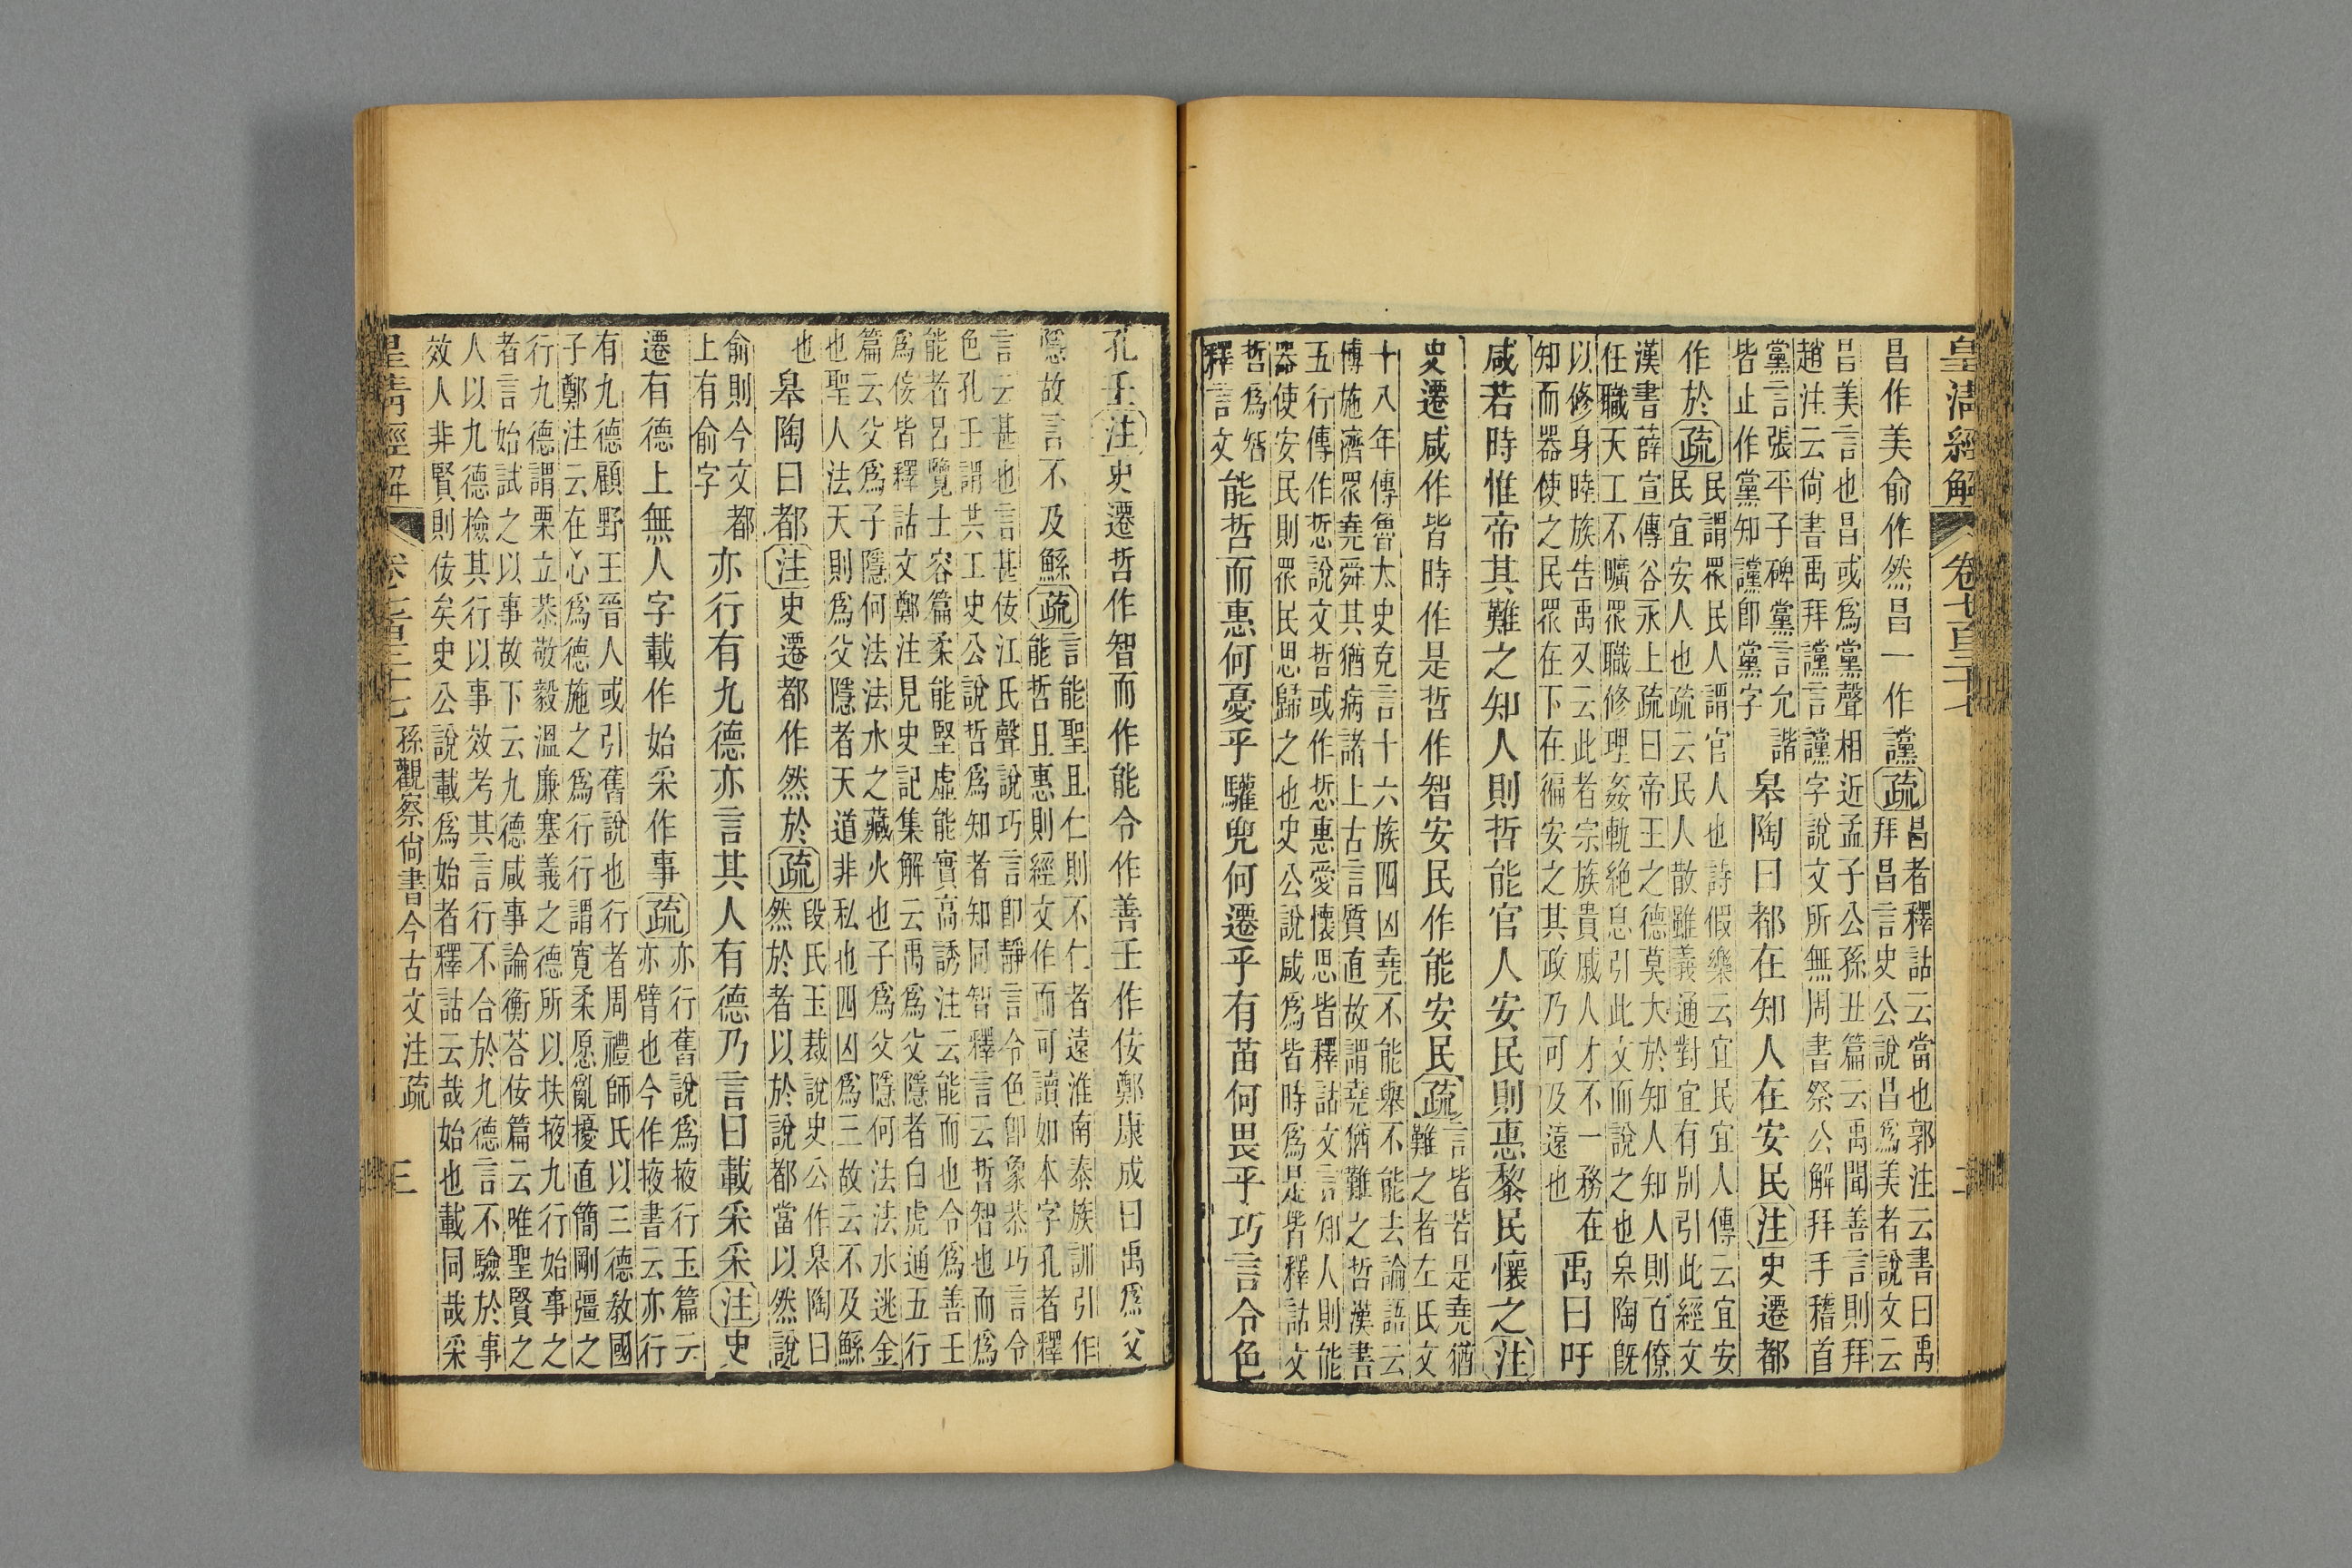 皇清經解 卷七百三十七 二
昌作美俞作然昌一作讜疏昌者釋詁云當也郭注云書曰禹
拜昌言史公說昌爲美者說文云
昌美言也昌或爲黨聲相近孟子公孫丑篇云禹聞善言則拜
趙注云尙書禹拜讜言讜字說文所無周書祭公解拜手稽首
黨言張平子碑黨言允諧
皆止作黨知讜卽黨字
皋陶曰都在知人在安民注史遷都
作於疏民謂眾民人謂官人也詩假樂云宜民宜人傳云宜安
民宜安人也疏云民人散雖義通對宜有別引此經文
漢書薛宣傳谷永上疏曰帝王之德莫大於知人知人則百僚
任職天工不曠眾職修理姦軌絶息引此文而說之也臯陶旣
以修身睦族告禹又云此者宗族貴戚人才不一務在
知而器使之民眾在下在徧安之其政乃可及遠也
禹曰吁
咸若時惟帝其難之知人則哲能官人安民則惠黎民懷之注
史遷咸作皆時作是哲作智安民作能安民疏言皆若是堯猶
難之者左氏文
十八年傳魯太史克言十六族四凶堯不能舉不能去論語云
博施濟眾堯舜其猶病諸上古言質直故謂堯猶難之哲漢書
五行傳作悊說文哲或作悊惠愛懷思皆釋詁文言知人則能
器使安民則眾民思歸之也史公說咸爲皆時爲是皆釋詁文
哲爲智
釋言文
能哲而惠何憂乎驩兜何遷乎有苗何畏乎巧言令色
孔壬注史遷哲作智而作能令作善壬作佞鄭康成曰禹爲父
隱故言不及鯀疏言能聖且仁則不仁者遠淮南泰族訓引作
能哲且惠則經文作而可讀如本字孔者釋
言云甚也言甚佞江氏聲說巧言卽靜言令色卽象恭巧言令
色孔壬謂共工史公說哲爲知者知同智釋言云哲智也而爲
能者呂覽士容篇柔能堅虛能實高誘注云能而也令爲善壬
爲佞皆釋詁文鄭注見史記集解云禹爲父隱者白虎通五行
篇云父爲子隱何法法水之藏火也子爲父隱何法法水逃金
也聖人法天則爲父隱者天道非私也四凶爲三故云不及鯀
也
皋陶曰都注史遷都作然於疏段氏玉裁說史公作臯陶曰
然於者以於說都當以然說
俞則今文都
上有俞字
亦行有九德亦言其人有德乃言曰載采采注史
遷有德上無人字載作始采作事疏亦行舊說爲掖行玉篇云
亦臂也今作掖書云亦行
有九德顧野王晉人或引舊說也行者周禮師氏以三德敎國
子鄭注云在心爲德施之爲行行謂寬柔愿亂擾直簡剛彊之
行九德謂栗立恭敬毅溫廉塞義之德所以扶掖九行始事之
者言始試之以事故下云九德咸事論衡荅佞篇云唯聖賢之
人以九德檢其行以事效考其言行不合於九德言不驗於事
效人非賢則佞矣史公說載爲始者釋詁云哉始也載同哉采
皇清經解 卷七百三十七 孫觀察尙書今古文注疏 三